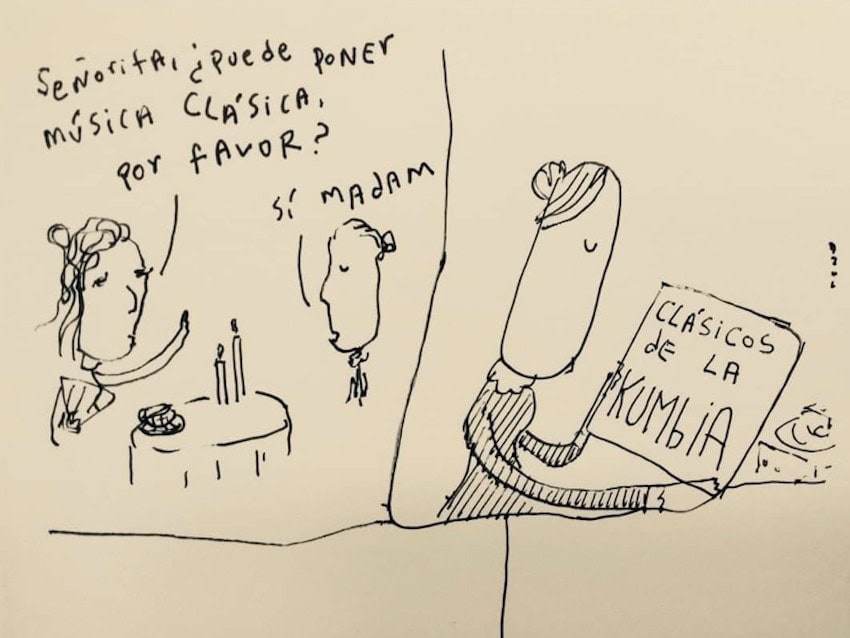 SEÑORITA, ¿PUEDE PONER
MÚSICA CLÁSICA,
POR FAVOR?
SÍ MADAM
CLÁSICOS
DE LA
KUMBIA